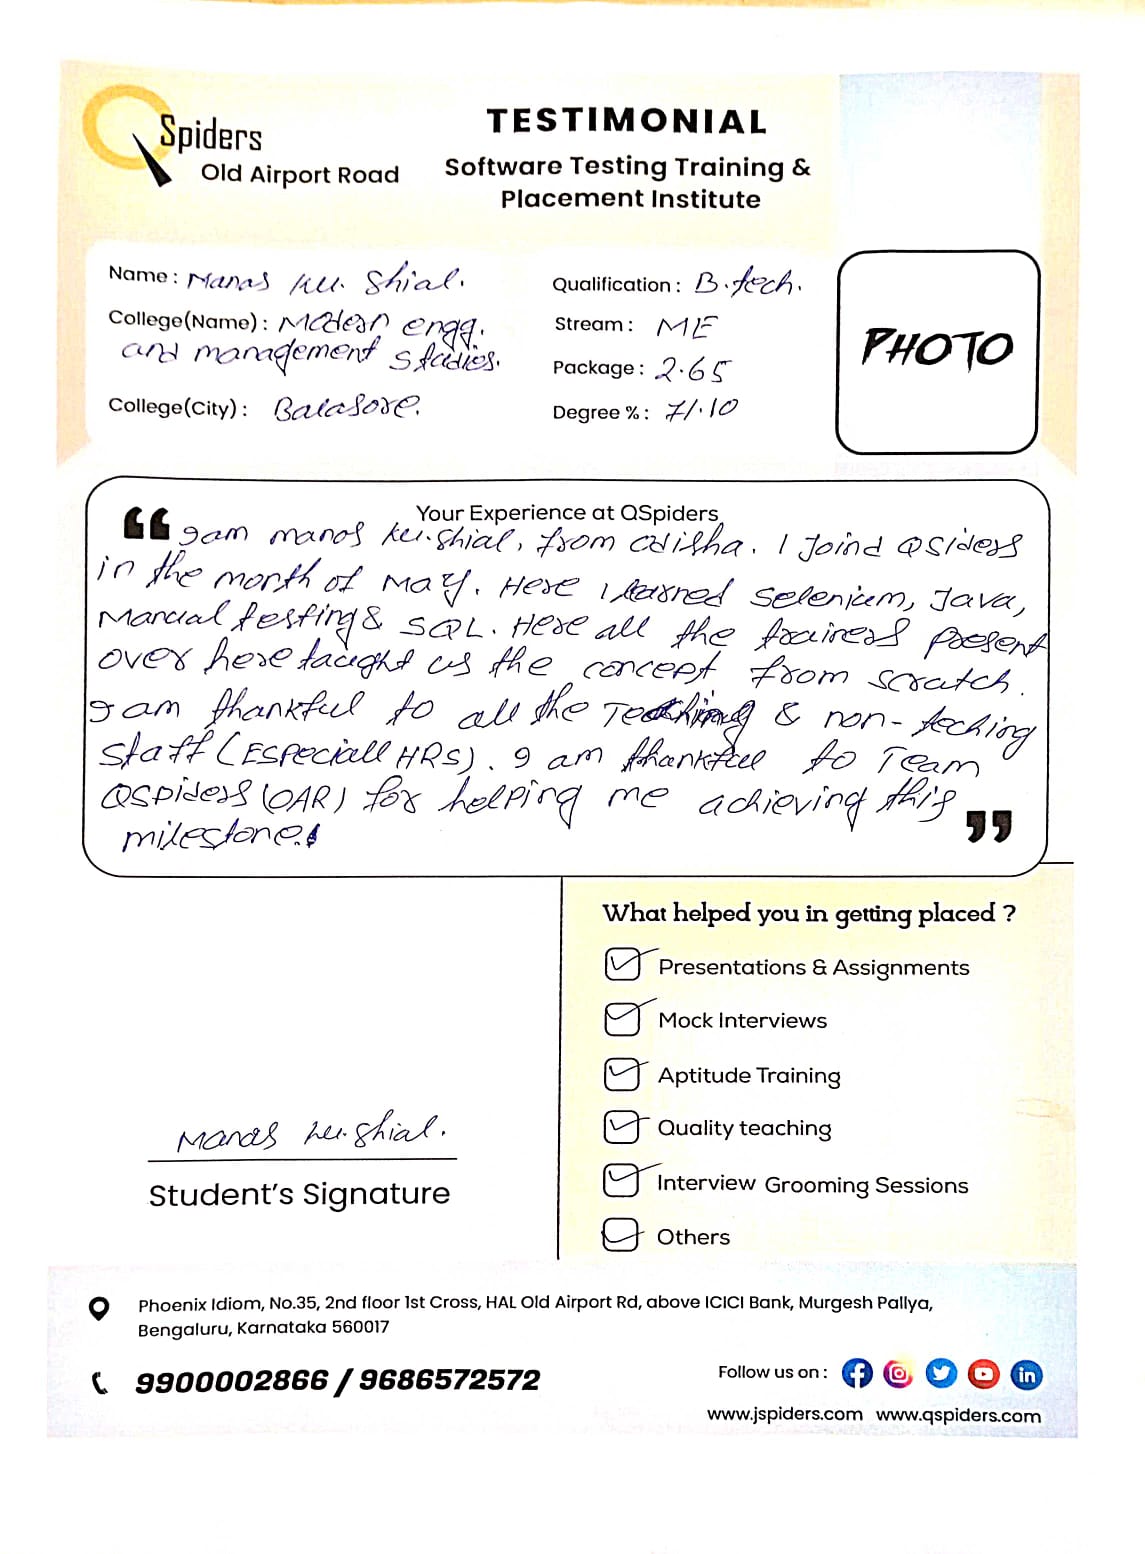 QSpiders
Old Airport Road
TESTIMONIAL
Software Testing Training &
Placement Institute
Name : Manas ku. Shial.
College(Name) : Modern engg.
and management studies.
College(City) : Balasore.
Qualification : B.tech.
Stream : ME
Package : 2.65
Degree % : 71.10
PHOTO
Your Experience at QSpiders
“ I am manas ku.shial, from odisha. I Joind QSiders
in the month of May. Here I learned Selenium, Java,
Manual testing & SQL. Here all the trainers present
over here taught us the concept from scratch.
I am thankful to all the Teaching & non-teching
staff (Especiall HRS). I am thankful to Team
QSpiders (OAR) for helping me achieving this
milestone. ”
What helped you in getting placed ?
Presentations & Assignments
Mock Interviews
Aptitude Training
Quality teaching
Interview Grooming Sessions
Others
Manas ku.Shial.
Student's Signature
Phoenix Idiom, No.35, 2nd floor 1st Cross, HAL Old Airport Rd, above ICICI Bank, Murgesh Pallya,
Bengaluru, Karnataka 560017
9900002866 / 9686572572
Follow us on :
www.jspiders.com www.qspiders.com